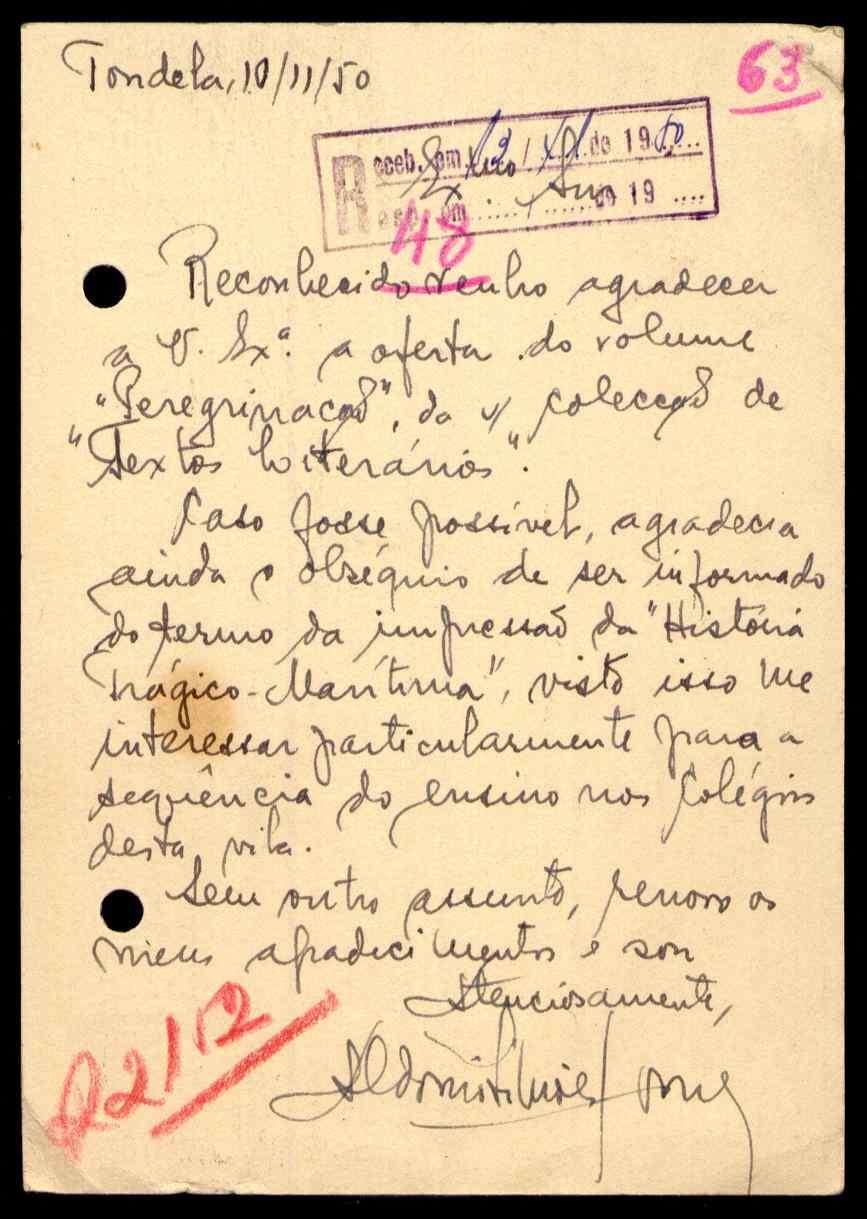 Tondela, 10/11/50
63
Receb. em 13 / XI de 1950
Exmo Snr.
Resp. em ..... / ...... de 19 ....
48
Reconhecido venho agradecer
a V. Exª. a oferta do volume
"Peregrinação", da v/ Colecção de
"Textos Literários".
Caso fosse possível, agradecia
ainda o obséquio de ser informado
do termo da impressão da "História
Trágico-Marítima", visto isso me
interessar particularmente para a
sequência do ensino nos Colégios
desta vila.
Sem outro assunto, renovo os
meus agradecimentos e sou
Atenciosamente,